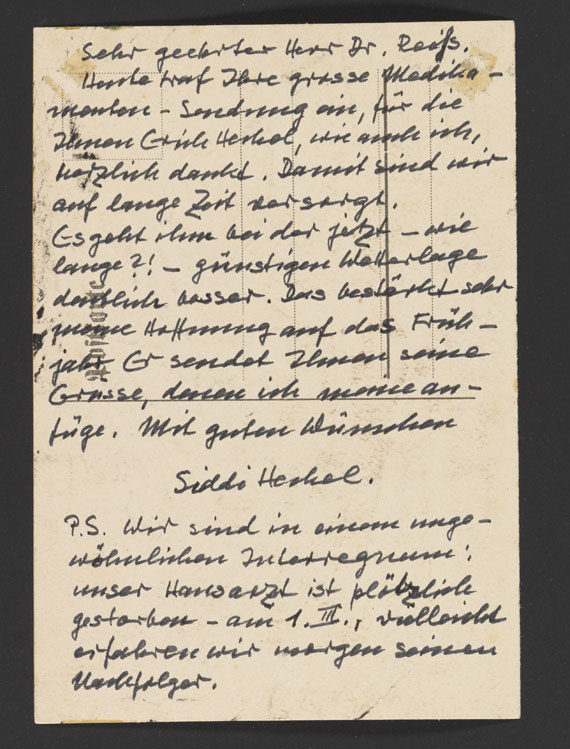 Sehr geehrter Herr Dr. Reiß.
Heute traf Ihre grosse Medika-
menten-Sendung ein, für die
Ihnen Erich Heckel, wie auch ich,
herzlich dankt. Damit sind wir
auf lange Zeit versorgt.
Es geht ihm bei der jetzt – wie
lange?! – günstigen Wetterlage
deutlich besser. Das bestärkt sehr
meine Hoffnung auf das Früh-
jahr. Er sendet Ihnen seine
Grüsse, denen ich meine an-
füge. Mit guten Wünschen
Siddi Heckel.
P.S. Wir sind in einem unge-
wöhnlichen Interregnum:
unser Hausarzt ist plötzlich
gestorben – am 1. III., vielleicht
erfahren wir morgen seinen
Nachfolger.